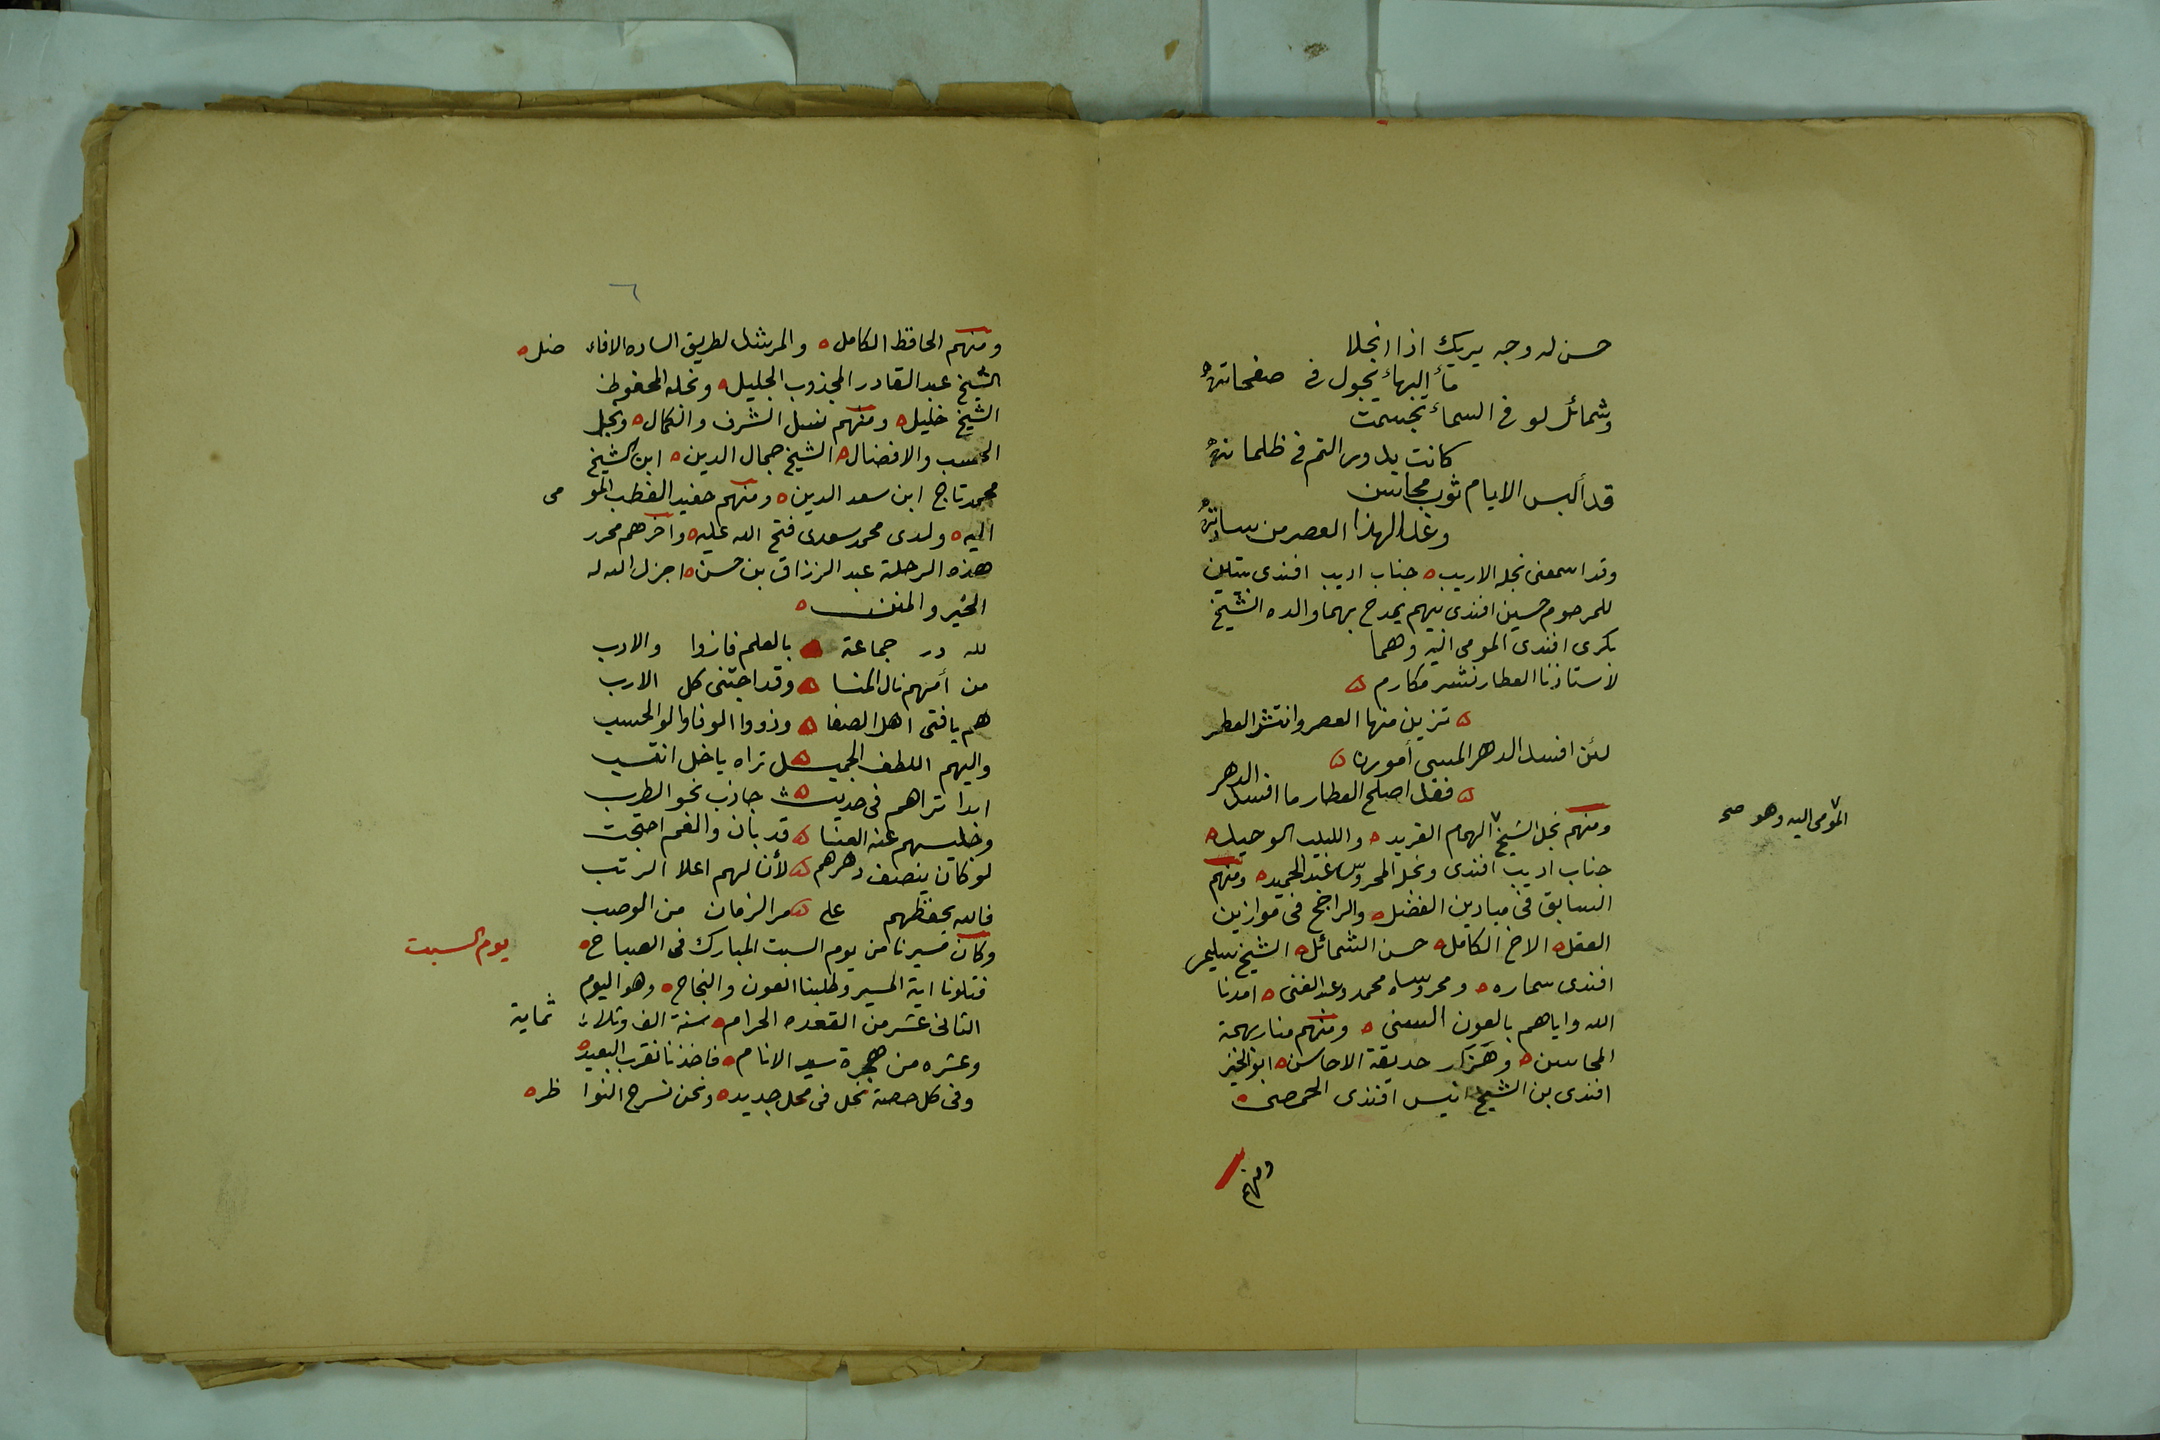 حسن له وجه يريك اذا انجلا
مأ البهاء يجول في صفحاته
وشمائل لو في السماء تجسمت
كانت بدور التم في ظلماته
قد ألبس الايام ثوب محاسن
وغدا لهذا العصر من ساداته
وقد اسمعني نجله الاريب ه جناب اديب افندي بيتين
للمرحوم حسين افندي بيهم يمدح بهما والده الشيخ
بكري افندي المومى اليه وهما
لاستاذنا العطار نشر مكارم ه
ه تزين منها العصر وانتشر العطر
لئن افسد الدهر المسي أموره ه
ه فقد اصلح العطار ما افسد الدهر
ومنهم نجل الشيخ ٧ الهمام الفريد ه واللبيب الوحيد ه
المومى اليه وهو صح
جناب اديب افندي ونجله المحروس عبد الحميد ه ومنهم
السابق في ميادين الفضل ه والراجح في موازين
العقل ه الاخ الكامل ه حسن الشمائل ه الشيخ سليم
افندي سماره ه ومحروساه محمد وعبد الغني ه امدنا
الله واياهم بالعون السني ه ومنهم منار بهجة
المحاسن ه وهزار حديقة الاحاسن ه ابو الخير
افندي بن الشيخ انيس افندي الحمصي ه
ومنهم
٦
ومنهم الحافظ الكامل ه والمرشد لطريق الساده الافاضل ه
الشيخ عبد القادر المجذوب الجليل ه ونجله المحفوظ
الشيخ خليل ه ومنهم نسل الشرف والكمال ه ونجل
الحسب والافضال ه الشيخ جمال الدين ه ابن الشيخ
محمد تاج ابن سعد الدين ه ومنهم حفيد القطب المومى
اليه ه ولدي محمد سعدي فتح الله عليه ه واخرهم محرر
هذه الرحلة عبد الرزاق بن حسن ه اجزل الله له
الخير والمنن ه
لله در جماعة ه بالعلم فازوا والادب
من أمهم نال المنا ه وقد اجتنى كل الارب
هم يا فتى اهل الصفا ه وذووا الوفا والو الحسب
واليهم اللطف الجميل تراه يا خل انتسب
ابدا تراهم في حديث جاذب نحو الطرب
وجليسهم عنه العنا ه قد بان والغم احتجب
لو كان ينصف دهرهم ه لأنالهم اعلا الرتب
فالله يحفظهم على مر الزمان من الوصب
وكان مسيرنا من يوم السبت المبارك في الصباح ه
يوم السبت
فتلونا اية المسير وطلبنا العون والنجاح ه وهو اليوم
الثاني عشر من القعده الحرام ه سنة الف وثلاثماية
وعشره من هجرة سيد الانام ه فاخذنا نقرب البعيد ه
وفي كل حصة نحل في محل جديد ه ونحن نسرح النواظر ه